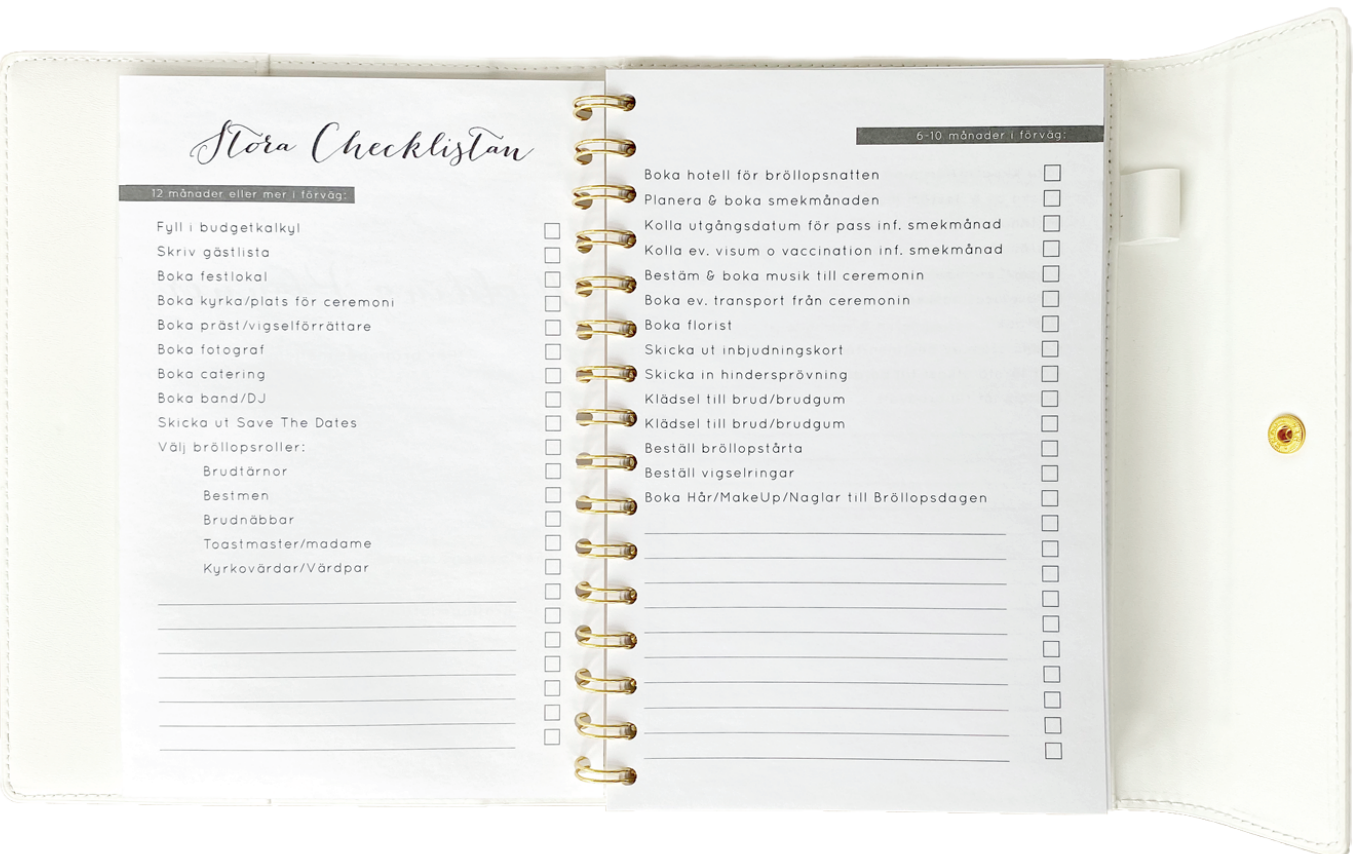 Stora Checklistan
12 månader eller mer i förväg:
Fyll i budgetkalkyl
Skriv gästlista
Boka festlokal
Boka kyrka/plats för ceremoni
Boka präst/vigselförrättare
Boka fotograf
Boka catering
Boka band/DJ
Skicka ut Save The Dates
Välj bröllopsroller:
Brudtärnor
Bestmen
Brudnäbbar
Toastmaster/madame
Kyrkovärdar/Värdpar
6-10 månader i förväg:
Boka hotell för bröllopsnatten
Planera & boka smekmånaden
Kolla utgångsdatum för pass inf. smekmånad
Kolla ev. visum o vaccination inf. smekmånad
Bestäm & boka musik till ceremonin
Boka ev. transport från ceremonin
Boka florist
Skicka ut inbjudningskort
Skicka in hindersprövning
Klädsel till brud/brudgum
Klädsel till brud/brudgum
Beställ bröllopstårta
Beställ vigselringar
Boka Hår/MakeUp/Naglar till Bröllopsdagen